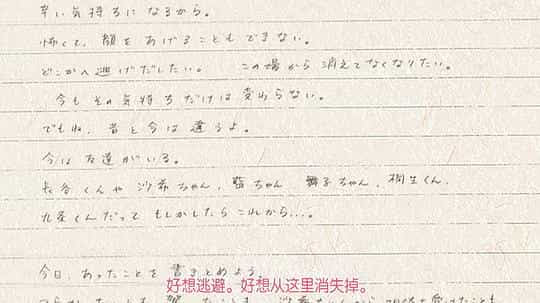 辛い気持ちになるから。
怖くて、顔をあげることもできない。
どこかへ逃げだしたい。 この場から消えてなくなりたい。
今もその気持ちだけは変わらない。
でもね、昔と今は違うよ。
今は友達がいる。
長谷くんや沙希ちゃん、藍ちゃん、舞子ちゃん、桐生くん、
九条くんだってもしかしたらこれから…。
今日、あったことを書きとめよう。
好想逃避。好想从这里消失掉。